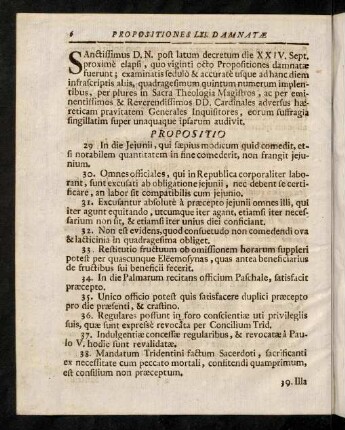 6 PROPOSITIONES LXI. DAMNATÆ
SAnctissimus D. N. post latum decretum die XXIV. Sept.
proximè elapsi, quo viginti octo Propositiones damnatæ
fuerunt; examinatis sedulò & accuratè usque ad hanc diem
infrascriptis aliis, quadragesimum quintum numerum implen-
tibus, per plures in Sacra Theologia Magistros, ac per emi-
nentissimos & Reverendissimos DD. Cardinales adversus hæ-
reticam pravitatem Generales Inquisitores, eorum suffragia
singillatim super unaquaque ipsarum audivit.
PROPOSITIO
29 In die Jejunii, qui sæpius modicum quid comedit, et-
si notabilem quantitatem in fine comederit, non frangit jeju-
nium.
30. Omnes officiales, qui in Republica corporaliter labo-
rant, sunt excusati ab obligatione jejunii, nec debent se certifi-
care, an labor sit compatibilis cum jejunio.
31. Excusantur absolutè à præcepto jejunii omnes illi, qui
iter agunt equitando, utcumque iter agant, etiamsi iter neces-
sarium non sit, & etiamsi iter unius diei conficiant.
32. Non est evidens, quod consuetudo non comedendi ova
& lacticinia in quadragesima obliget.
33. Restitutio fructuum ob omissionem horarum suppleri
potest per quascunque Eleemosynas, quas antea beneficiarius
de fructibus sui beneficii fecerit.
34. In die Palmarum recitans officium Paschale, satisfacit
præcepto.
35. Unico officio potest quis satisfacere duplici præcepto
pro die præsenti, & crastino.
36. Regulares possunt in foro conscientiæ uti privilegiis
suis, quæ sunt expressè revocata per Concilium Trid.
37. Indulgentiæ concessæ regularibus, & revocatæ à Pau-
lo V. hodie sunt revalidatæ.
38. Mandatum Tridentini factum Sacerdoti, sacrificanti
ex necessitate cum peccato mortali, confitendi quamprimum,
est consilium non præceptum.
39. Illa